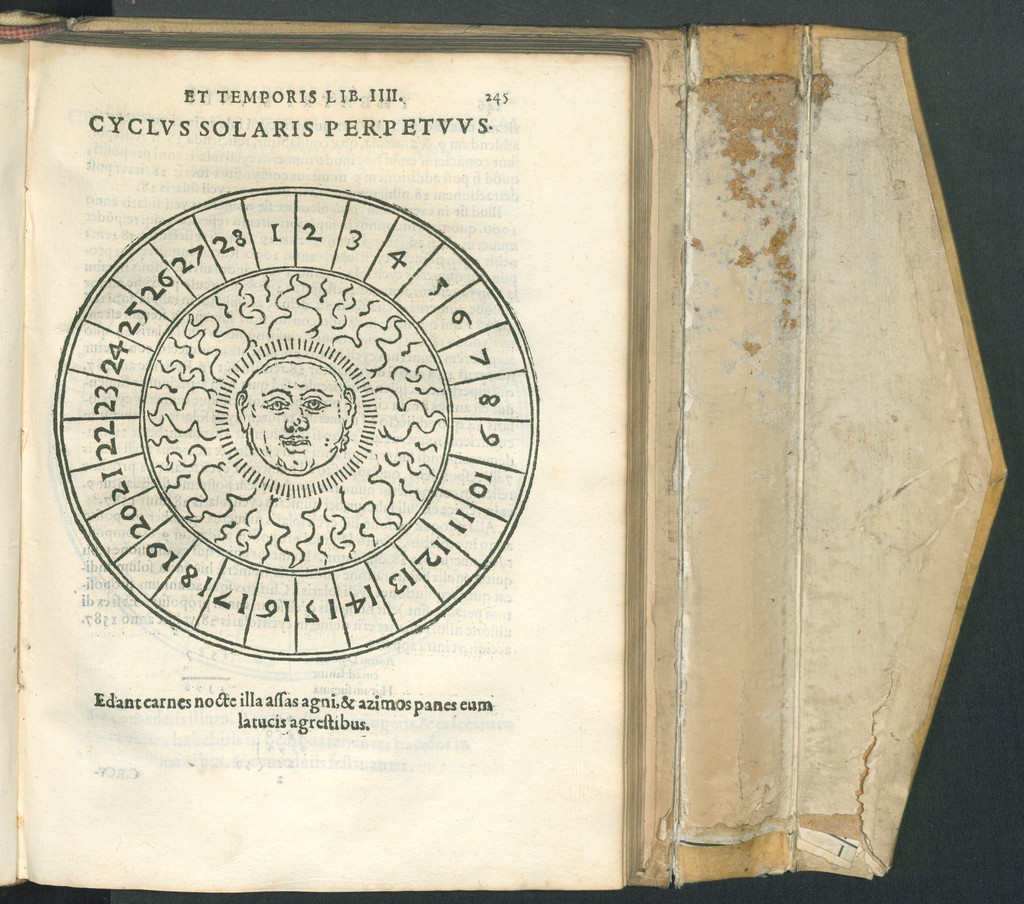 ET TEMPORIS LIB. IIII. 245
CYCLVS SOLARIS PERPETVVS.
1 2 3 4 5 6 7 8 9 10 11 12 13 14 15 16 17 18 19 20 21 22 23 24 25 26 27 28
Edant carnes nocte illa assas agni, & azimos panes eum
latucis agrestibus.